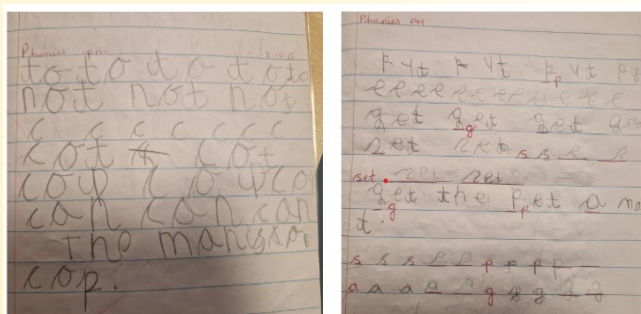 Phonics pm
to to to to to to
not not not
c c c c c c c
cot cot
cop cop co
can can can
The man is a
cop.
Phonics pm
p u t p u t p p u t p u
e e e e e e e e e e e e e
get g get get ge
set set s s s s
set. set set
get the p pet a ma
t. g
s s s s s p p p p p
a a a a a g g g g g